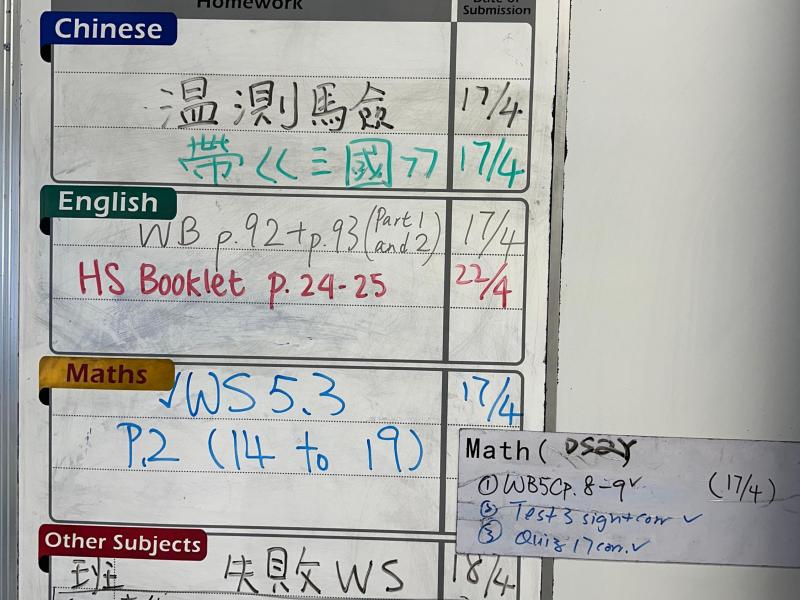 Homework
Date of Submission
Chinese
温測馬僉 17/4
帶<<三國>> 17/4
English
WB p.92+p.93 (Part 1 and 2) 17/4
HS Booklet p. 24-25 22/4
Maths
√WS 5.3 17/4
P.2 (14 to 19)
Math (
① WB5C p. 8-9 ✓ (17/4)
② Test 3 sign+corr ✓
③ Quiz 17 corr. ✓
Other Subjects
班 失敗 WS 18/4